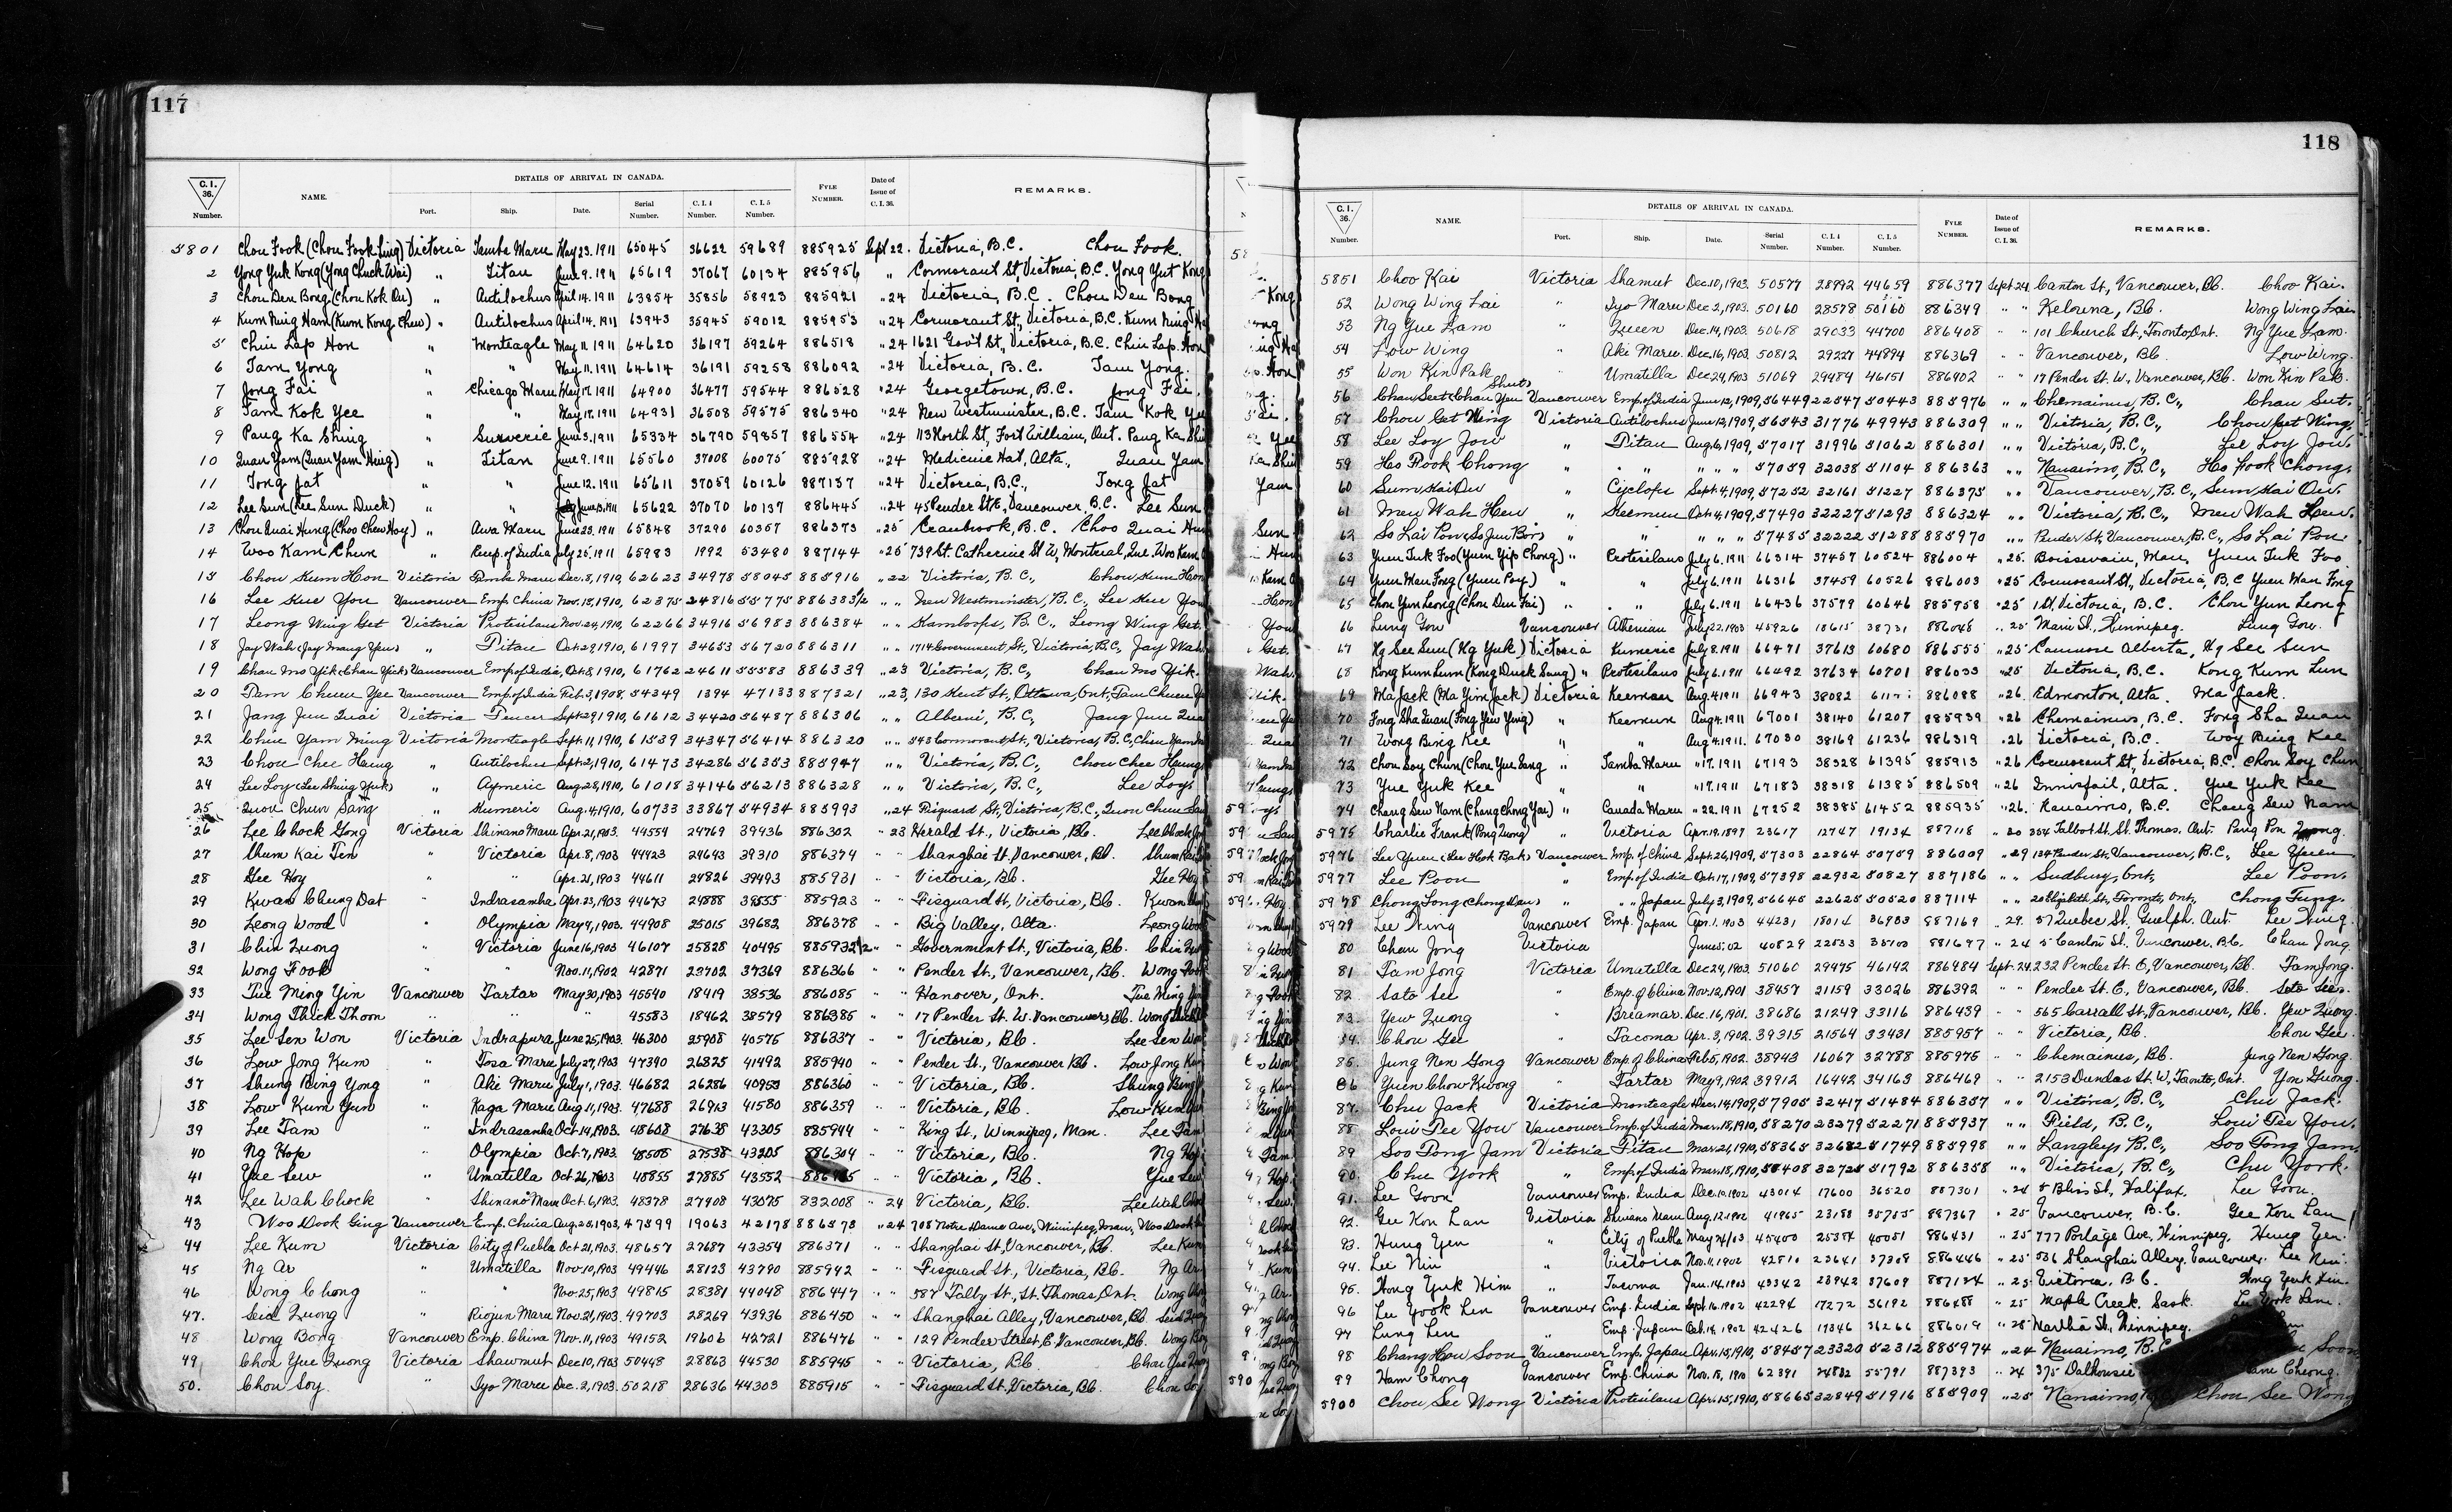 117
C. I. 36. Number. NAME. DETAILS OF ARRIVAL IN CANADA. Port. Ship. Date. Serial Number. C. I. 4 Number. C. I. 5 Number. FYLE NUMBER. Date of Issue of C. I. 36. REMARKS.
5801 Chou Fook (Chou Fook Ling) Victoria Tamba Maru May 23. 1911 65045 36622 59689 885925 Sept 22. Victoria, B.C. Chou Fook.
2 Yong Yuk Kong (Yong Chuck Wai) " Titan June 9. 1911 65619 37067 60134 885956 " Cormorant St, Victoria, B.C. Yong Yut Kong
3 Chou Den Bong (Chou Kok On) " Antilochus April 14. 1911 63854 35856 58923 885921 " 24 Victoria, B.C. Chou Den Bong
4 Kum Ning Ham (Kum Kong Chew) " Antilochus April 14. 1911 63943 35945 59012 885953 " 24 Cormorant St., Victoria, B.C. Kum Ning
5 Chin Lap Hon " Monteagle May 11. 1911 64620 36197 59264 886518 " 24 1621 Gov't St., Victoria, B.C. Chin Lap Hon
6 Tam Yong " " May 11. 1911 64614 36191 59258 886092 " 24 Victoria, B.C. Tam Yong.
7 Jong Fai " Chicago Maru May 17. 1911 64900 36477 59544 886528 " 24 Georgetown, B.C. Jong Fai.
8 Tam Kok Yee " " May 17. 1911 64931 36508 59575 886340 " 24 New Westminster, B.C. Tam Kok Yee
9 Pang Ka Shing " Suveric June 3. 1911 65334 36790 59857 886554 " 24 113 North St, Fort William, Ont. Pang Ka Shi
10 Quan Yam (Quan Yam Hing) " Titan June 9. 1911 65560 37008 60075 885928 " 24 Medicine Hat, Alta., Quan Yam
11 Tong Jat " " June 12. 1911 65611 37059 60126 887137 " 24 Victoria, B.C., Tong Jat
12 Lee Sun (Lee Sun Duck) " " June 13, 1911 65622 37070 60137 886445 " 24 45 Pender St E, Vancouver, B.C. Lee Sun
13 Chou Quai Hung (Choo Chew Hoy) " Awa Maru June 23. 1911 65848 37290 60357 886373 " 25 Cranbrook, B.C. Choo Quai Hun
14 Woo Kam Chun " Emp. of India July 25, 1911 65983 1992 53480 887144 " 25 739 St. Catherine St W, Montreal, Que. Woo Kam
15 Chou Kum Hon Victoria Tamba Maru Dec. 8, 1910, 62623 34978 58045 885916 " 22 Victoria, B.C., Chou Kum Hon
16 Lee Kue You Vancouver Emp. China Nov. 15, 1910, 62375 24816 55775 886383 1/2 " " New Westminster, B.C., Lee Kue You
17 Leong Wing Get Victoria Protesilaus Nov. 24, 1910, 62266 34916 56983 886384 " " Kamloops, B.C., Leong Wing Get.
18 Jay Wah (Jay Mang Yen) " Titan Oct 29, 1910, 61997 34653 56720 886311 " " 1714 Government St, Victoria, B.C., Jay Wah
19 Chan Mo Yik (Chan Yick) Vancouver Emp. of India, Oct. 8, 1910, 61762 24611 55583 886339 " 23 Victoria, B.C., Chan Mo Yik.
20 Tam Chuen Yee Vancouver Emp. of India Feb. 3, 1908, 54349 1394 47133 887321 " 23, 130 Kent St, Ottawa, Ont., Tam Chuen
21 Jang Jun Quai Victoria Teucer Sept 29, 1910, 61612 34420 56487 886306 " " Alberni, B.C., Jang Jun Quai
22 Chin Yam Ming Victoria Monteagle Sept. 11, 1910, 61539 34347 56414 886320 " " 543 Cormorant St., Victoria, B.C., Chin Yam
23 Chou Chee Hung " Antilochus Sept. 2, 1910, 61473 34286 56353 885947 " " Victoria, B.C., Chou Chee Hung
24 Lee Loy (Lee Shing Yuk) " Aymeric Aug 28, 1910, 61018 34146 56213 886328 " " Victoria, B.C., Lee Loy
25 Quon Chun Sang " Kumeric Aug. 4, 1910, 60733 33867 54934 885993 " 24 Fisguard St, Victoria, B.C., Quon Chun
26 Lee Chock Gong Victoria Shinano Maru Apr. 21, 1903. 44554 24769 39436 886302 " 23 Herald St., Victoria, B.C. Lee Chock
27 Shum Kai Ten " Victoria Apr. 8, 1903 44423 24643 39310 886374 " " Shanghai St. Vancouver, B.C. Shum Kai
28 Gee Hoy " " Apr. 21, 1903 44611 24826 39493 885931 " " Victoria, B.C. Gee Hoy
29 Kwan Chung Dat " Indrasamha Apr. 23, 1903 44673 24888 39555 885923 " " Fisguard St, Victoria, B.C. Kwan
30 Leong Wood " Olympia May 4, 1903. 44908 25015 39682 886378 " " Big Valley, Alta. Leong Wood
31 Chin Quong " Victoria June 16, 1903 46107 25828 40495 885932 1/2 " " Government St., Victoria, B.C. Chin
32 Wong Fook " " Nov. 11, 1902 42871 23702 37369 886366 " " Pender St., Vancouver, B.C. Wong Fook
33 Tue Ming Yin Vancouver Tartar May 30, 1903 45540 18419 38536 886085 " " Hanover, Ont. Tue Ming Yin
34 Wong Thick Thoon " " " 45583 18462 38579 886385 " " 17 Pender St. W. Vancouver, B.C. Wong Thick
35 Lee Sen Won Victoria Indrapura June 25, 1903. 46300 25908 40575 886337 " " Victoria, B.C. Lee Sen Won
36 Low Jong Kum " Tosa Maru July 27, 1903 47390 26825 41492 885940 " " Pender St., Vancouver B.C. Low Jong Kum
37 Shung Bing Yong " Aki Maru July 1, 1903. 46682 26286 40953 886360 " " Victoria, B.C. Shung Bing
38 Low Kum Yun " Kaga Maru Aug 11, 1903. 47688 26913 41580 886359 " " Victoria, B.C. Low Kum Yun
39 Lee Tam " Indrasamha Oct. 14, 1903. 48608 27638 43305 885944 " " King St., Winnipeg, Man. Lee Tam
40 Ng Hop " Olympia Oct. 7, 1903. 48508 27538 43205 886304 " " Victoria, B.C. Ng Hop
41 Yue Sew " Umatilla Oct 26, 1903 48855 27885 43552 " " Victoria, B.C. Yue Sew
42 Lee Wah Chock " Shinano Maru Oct. 6, 1903. 48378 27408 43075 832008 " 24 Victoria, B.C. Lee Wah Chock
43 Woo Dook Ging Vancouver Emp. China Aug. 25, 1903, 47599 19063 42178 886578 " 24 708 Notre Dame Ave., Winnipeg, Man., Woo Dook
44 Lee Kum Victoria City of Puebla Oct 21, 1903. 48657 27687 43354 886371 " " Shanghai St, Vancouver, B.C. Lee Kum
45 Ng Ar " Umatilla Nov. 10, 1903 49446 28123 43790 885942 " " Fisguard St., Victoria, B.C. Ng Ar
46 Wong Chong " " Nov. 25, 1903 49815 28381 44048 886447 " " 587 Talby St., St. Thomas, Ont. Wong
47. Seid Quong " Riojun Maru Nov. 21, 1903. 49703 28269 43936 886450 " " Shanghai Alley, Vancouver, B.C. Seid
48 Wong Bong Vancouver Emp. China Nov. 11, 1903 49152 19606 42721 886476 " " 129 Pender Street, E. Vancouver, B.C. Wong Bong
49 Chou Yue Quong Victoria Shawmut Dec 10, 1903 50448 28863 44530 885945 " " Victoria, B.C. Chou Yue
50. Chou Soy " Iyo Maru Dec. 2, 1903. 50218 28636 44303 885915 " " Fisguard St, Victoria, B.C. Chou Soy
118
C. I. 36. Number. NAME. DETAILS OF ARRIVAL IN CANADA. Port. Ship. Date. Serial Number. C. I. 4 Number. C. I. 5 Number. FYLE NUMBER. Date of Issue of C. I. 36. REMARKS.
5851 Choo Kai Victoria Shamut Dec. 10, 1903. 50577 28992 44659 886377 Sept 24, Canton St., Vancouver, B.C. Choo Kai.
52 Wong Wing Lai " Iyo Maru Dec 2, 1903. 50160 28578 50160 886349 " " Kelowna, B.C. Wong Wing Lai
53 Ng Yue Lam " Queen Dec. 14, 1903. 50618 29033 44700 886408 " " 101 Church St, Toronto, Ont. Ng Yue Lam.
54 Low Wing " Aki Maru Dec. 16, 1903. 50812 29227 44894 886369 " " Vancouver, B.C. Low Wing.
55 Won Kin Pak " Umatilla Dec 24, 1903 51069 29484 46151 886402 " " 17 Pender St. W., Vancouver, B.C. Won Kin Pak.
56 Chan Seet (Chan Yeu Vancouver Emp. of India June 12, 1909, 56449 22547 50443 885976 " " Chemainus, B.C., Chan Sut.
57 Chou Get Wing Victoria Antilochus June 12, 1909, 56543 31776 49943 886309 " " Victoria, B.C., Chou Get Wing.
58 Lee Loy Jow " Titan Aug. 6, 1909, 57017 31996 51062 886301 " " Victoria, B.C., Lee Loy Jow.
59 Ho Fook Chong " " " " " 57059 32038 51104 886363 " " Nanaimo, B.C., Ho Fook Chong.
60 Sum Kai On " Cyclops Sept. 4, 1909, 57252 32161 51227 886375 " " Vancouver, B.C., Sum Kai On.
61 Meu Wah Heu " Keemun Oct. 4, 1909, 57490 32227 51293 886324 " " Victoria, B.C., Meu Wah Heu.
62 So Lai Pon (So Jun Bor) " " " " " 57485 32222 51288 885970 " " Pender St, Vancouver, B.C., So Lai Pon.
63 Yuen Tuk Foo (Yuen Yip Chong) " Protesilaus July 6, 1911 66314 37457 60524 886004 " 25. Boissevain, Man. Yuen Tuk Foo
64 Yuen Man Fong (Yuen Poy) " " July 6. 1911 66316 37459 60526 886003 " 25 Cormorant St., Victoria, B.C Yuen Man Fong
65 Chou Yun Leong (Chou Den Fai) " " July 6. 1911 66436 37579 60646 885958 " 25 Victoria, B.C. Chou Yun Leong
66 Lung Gow Vancouver Athenian July 22, 1903 45926 18615 38731 886048 " 25 Main St., Winnipeg. Lung Gow.
67 Ng See Sun (Ng Yuk) Victoria Kumeric July 8. 1911 66471 37613 60680 886555 " 25 Canmore Alberta, Ng See Sun
68 Kong Kum Lum (Kong Duck Sang) " Protesilaus July 6, 1911 66492 37634 60701 886033 " 25 Victoria, B.C. Kong Kum Lun
69 Ma Jack (Ma Yim Jack) Victoria Keemun Aug. 4. 1911 66943 38082 886088 " 26. Edmonton, Alta. Ma Jack.
70 Fong Sha Quan (Fong Yew Ying) " Keemun Aug 4. 1911 67001 38140 61207 885939 " 26 Chemainus, B.C. Fong Sha Quan
71 Wong Bing Kee " " Aug. 4. 1911. 67030 38169 61236 886319 " 26 Victoria, B.C. Woy Bing Kee
72 Chou Soy Chun (Chou Yue Sang " Tamba Maru " 17. 1911 67193 38328 61395 885913 " 26 Cormorant St, Victoria, B.C. Chou Soy Chun
73 Yue Yuk Kee " " " 17. 1911 67183 38318 61385 886509 " 26 Innisfail, Alta. Yue Yuk Kee
74 Chang Sew Nam (Chang Chong You) " Canada Maru " 22. 1911 67252 38385 61452 885935 " 26. Nanaimo, B.C. Chang Sew Nam
5975 Charlie Frank (Pong Quong) " Victoria Apr. 19. 1897 23617 12747 19134 887118 " 30 354 Talbot St. St. Thomas, Ont. Pang Pon Quong.
5976 Lee Yuen (Lee Hok Bak) Vancouver Emp. of China Sept. 26, 1909, 57303 22864 50759 886009 " 29 134 Pender St., Vancouver, B.C., Lee Yuen
5977 Lee Poon " Emp. of India Oct. 17, 1909, 57398 22932 50827 887186 " " Sudbury, Ont., Lee Poon.
5978 Chong Tong (Chong Dan) " " " Japan July 3, 1909, 56645 22625 50520 887114 " " 20 Elizabeth St, Toronto, Ont, Chong Tung.
5979 Lee Ning Vancouver Emp. Japan Apr. 1, 1903 44231 18014 36983 887169 " 29. 57 Quebec St., Guelph. Ont. Lee Ning.
80 Chan Jong Victoria June 5. 02 40829 22533 35700 881697 " 24 5 Canton St., Vancouver, B.C. Chan Jong
81 Tam Jong Victoria Umatilla Dec 24, 1903. 51060 29475 46142 886484 Sept. 24, 232 Pender St. E, Vancouver, B.C. Tam Jong.
82. Soto See " Emp. of China Nov. 12, 1901 38457 21159 33026 886392 " " Pender St. E, Vancouver, B.C. Soto See.
83. Yew Quong " Braemar Dec. 16, 1901. 38686 21249 33116 886439 " " 565 Carrall St., Vancouver, B.C. Yew Quong.
84. Chou Gee " Tacoma Apr. 3, 1902 39315 21564 33431 885957 " " Victoria, B.C. Chou Gee.
85. Jung Nen Gong Vancouver Emp of China Feb. 5, 1902. 38943 16067 32788 885975 " " Chemainus, B.C. Jung Nen Gong.
86 Yuen Chow Kwong " Tartar May 9, 1902 39912 16442 34163 886469 " " 2153 Dundas St. W, Toronto, Ont. Yon Quong.
87. Chu Jack Victoria Monteagle Dec. 14, 1909, 57905 32417 51484 886357 " " Victoria, B.C., Chu Jack.
88 Loui Dee You Vancouver Emp. of India Mar. 18, 1910, 58270 23279 52271 885937 " " Field, B.C., Loui Dee You.
89 Soo Tong Jam Victoria Titan Mar. 21, 1910, 58365 32682 51749 885998 " " Langley, B.C., Soo Tong Jam.
90. Chu York " Emp. of India Mar. 18, 1910, 58408 32725 51792 886358 " " Victoria, B.C., Chu York.
91. Lee Goon Vancouver Emp. India Dec. 10, 1902 43014 17600 36520 887301 " 24 5 Blis St, Halifax. Lee Goon.
92. Gee Kon Lan Victoria Shinano Maru Aug. 12. 1902 41965 23188 35755 887367 " 25 Vancouver, B.C. Gee Kon Lan
93. Hung Yen " City of Puebla May 24/03 45400 25384 40051 886431 " 25 777 Portage Ave, Winnipeg. Hung Yen.
94. Lee Nin " Victoria Nov. 11, 1902 42810 23641 37308 886446 " 25 536 Shanghai Alley, Vancouver. Lee Nin.
95. Hong Yuk Him " Tacoma Jan. 14, 1903 43342 23942 37609 887134 " 25. Victoria, B.C.
96 Lee Yook Len Vancouver Emp. India Sept. 16. 1902 42294 17272 36192 886488 " 25 Maple Creek, Sask.
97 Lung Len " Emp. Japan Oct. 14, 1902 42426 17346 36266 886019 " 25 Martha St., Winnipeg.
98 Chang How Soon Vancouver Emp. Japan Apr. 15, 1910, 58457 23320 52312 885974 " 24 Nanaimo, B.C. Soon
99 Ham Chong Vancouver Emp. China Nov. 15, 1910 62391 24832 55791 887393 " 24 375 Dalhousie Cheong.
5900 Chou See Wong Victoria Protesilaus Apr. 15, 1910, 58665 32849 51916 885909 " 25 Nanaimo, Chou See Wong